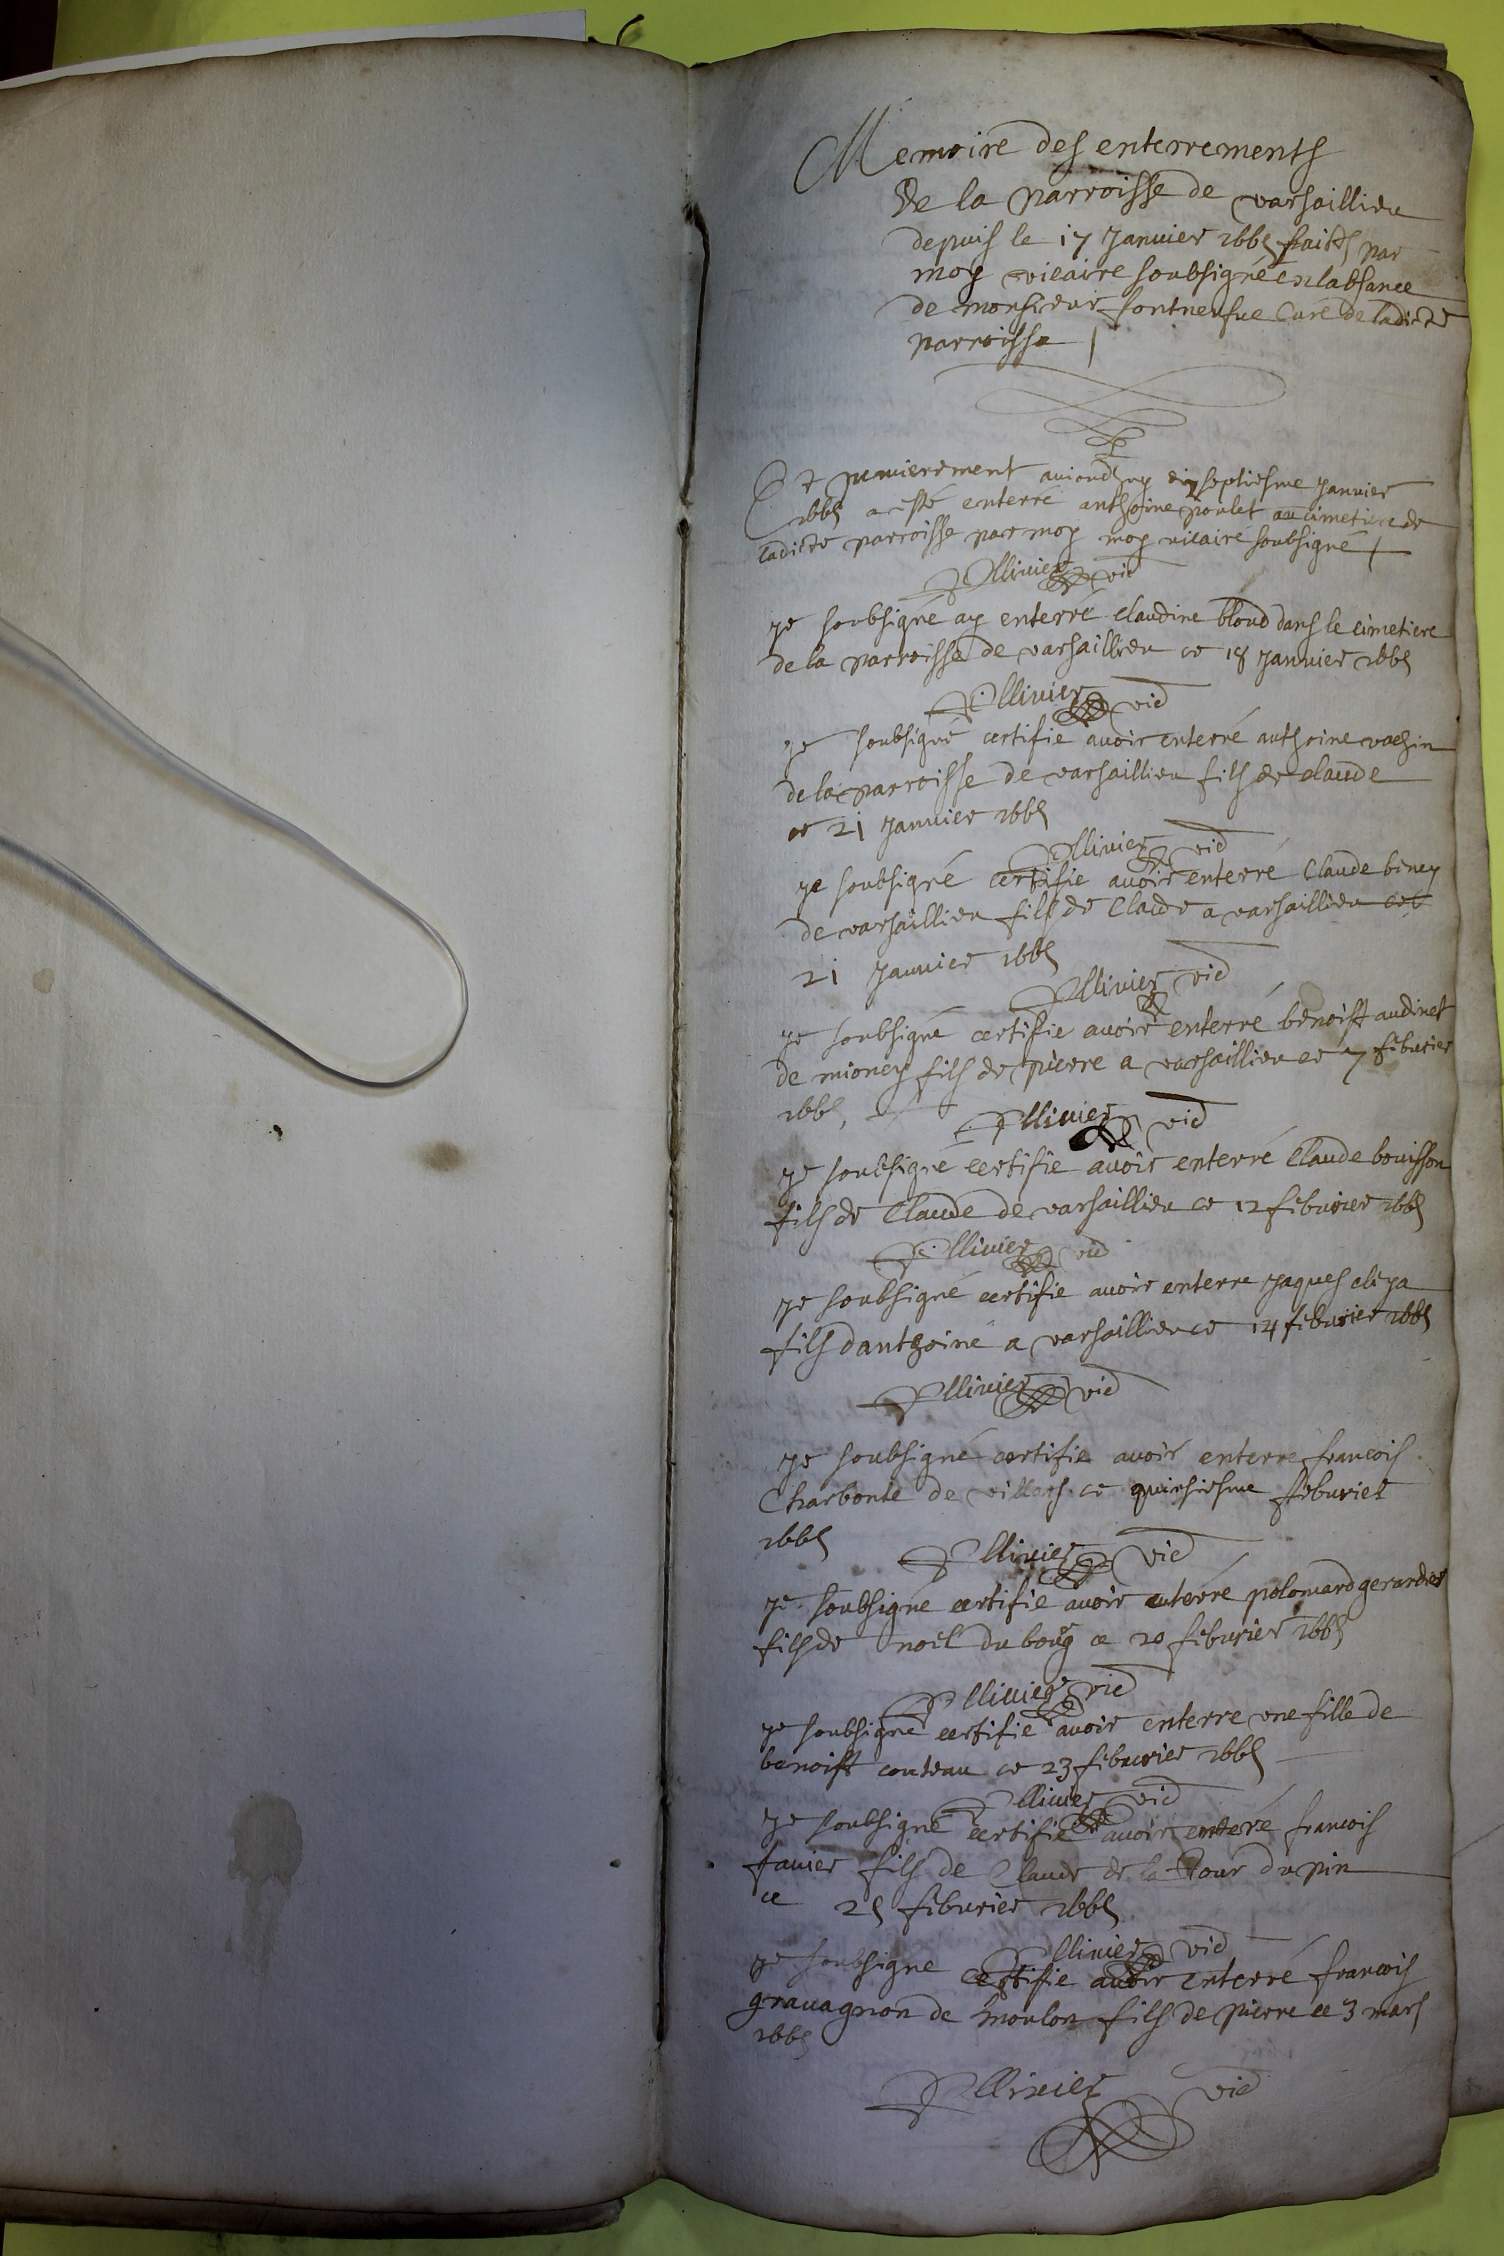 Memoire des enterrements
de la parroisse de varsaillieu
depuis le 17 Janvier 1665 faicts par
moy vicaire soubsigné en labsance
de monsieur fontneufue Curé de ladicte
parroisse
Et premierement aujourdhuy dixseptiesme Janvier
1665 a esté enterré anthoine poulet au cimetiere de
ladicte parroisse par moy moy vicaire soubsigné
Ollivier vic
Je soubsigné ay enterré claudine bloud dans le cimetiere
de la parroisse de varsaillieu ce 18 Janvier 1665
Ollivier vic
Je soubsigné certifie avoir enterré anthoine vachin
de la parroisse de varsaillieu fils de claude
ce 21 Janvier 1665
Ollivier vic
Je soubsigné certifie avoir enterré Claude biney
de varsaillieu fils de Claude a varsaillieu ce
21 Janvier 1665
Ollivier vic
Je soubsigné certifie avoir enterré benoist audinet
de mioney fils de pierre a varsaillieu ce 7 feburier
1665
Ollivier vic
Je soubsigné certifie avoir enterré Claude bouisson
fils de Claude de varsaillieu ce 12 feburier 1665
Ollivier vic
Je soubsigné certifie avoir enterre Jaques
fils danthoine a varsaillieu ce 14 feburier 1665
Ollivier vic
Je soubsigné certifie avoir enterre francois
Charbonie de villars ce quinsiesme feburier
1665
Ollivier vic
Je soubsigné certifie avoir enterré
fils de noel du bourg ce 20 feburier 1665
Ollivier vic
Je soubsigné certifie avoir enterre une fille de
benoist couteau ce 23 feburier 1665
Ollivier vic
Je soubsigné certifie avoir enteré francois
favier fils de Claude de la Tour du pin
ce 25 feburier 1665
Ollivier vic
Je soubsigne certifie avoir enterré francois
gravagnon de moulon fils de pierre ce 3 mars
1665
Ollivier vic